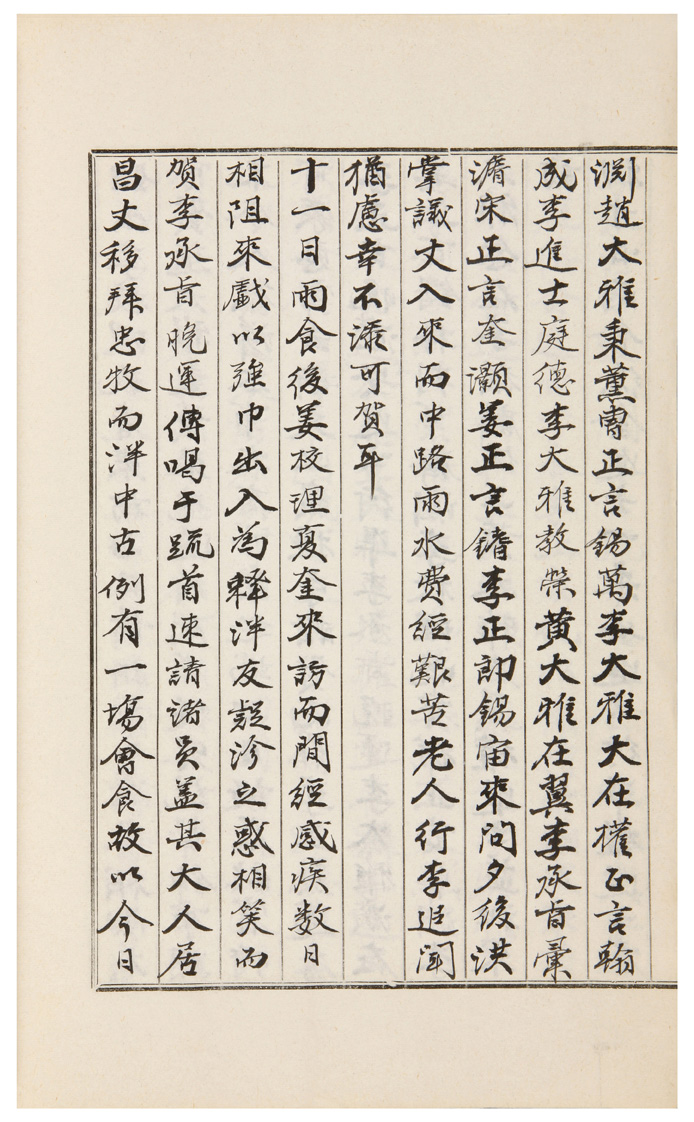 淵趙大雅秉薰曺正言錫萬李大雅大在權正言翰
成李進士庭德李大雅教榮黄大雅在翼李承旨彙
潽宋正言奎灝姜正言鐥李正郎錫宙來问夕後洪
掌議丈入來而中路雨水費經艱苦老人行李追闻
猶慮幸不添可賀耳
十一日雨食後姜校理夏奎來訪而間經感疾数日
相阻來戲以强巾出入為釋泮友疑沴之惑相笑而
賀李承旨晚運傅喝于疏首速請諸员盖其大人居
昌丈移拜忠牧而泮中古例有一場會食故以今日